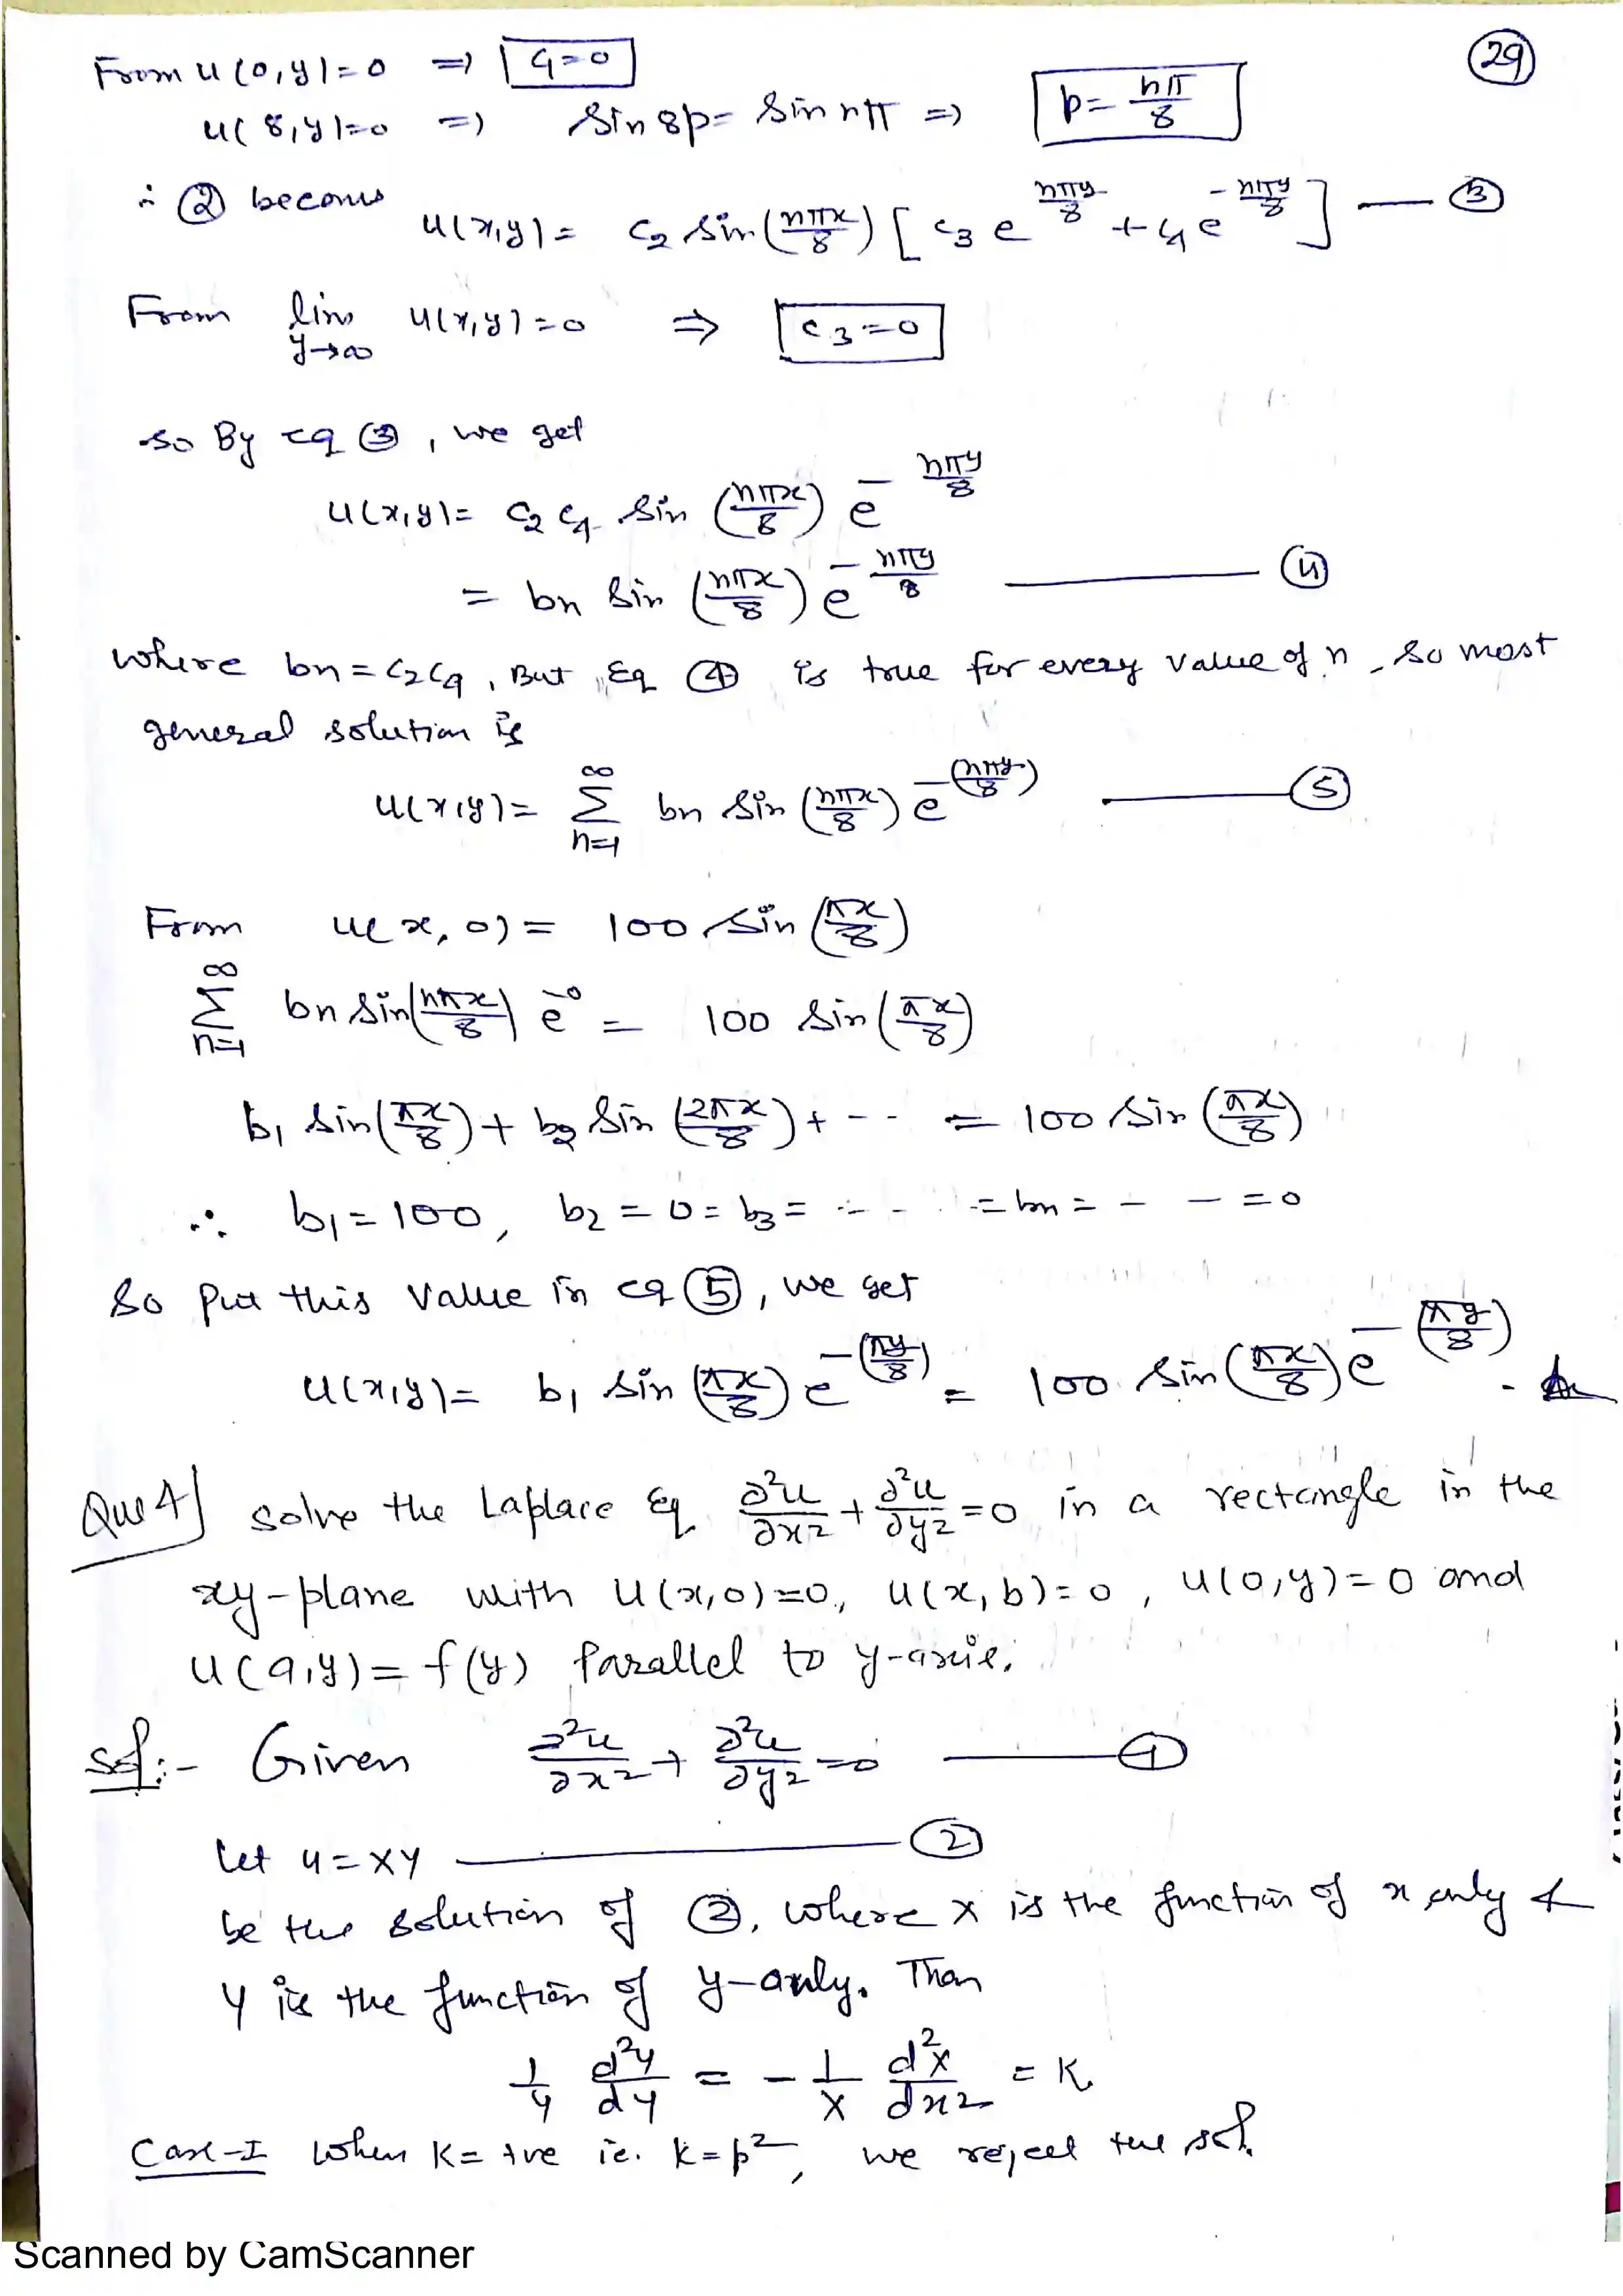 29
From u(0,y)=0 ⇒ c₁=0
u(8,y)=0 ⇒ Sin 8p = Sin nπ ⇒ p = nπ/8
∴ ② becomes u(x,y) = c₂ sin(nπx/8) [c₃ e^(nπy/8) + c₄ e^(-nπy/8)] — ③
From lim y→∞ u(x,y)=0 ⇒ c₃=0
so By eq ③, we get
u(x,y) = c₂ c₄ sin(nπx/8) e^(-nπy/8)
= bn sin(nπx/8) e^(-nπy/8) — ④
where bn = c₂c₄, But Eq ④ is true for every value of n, so most
general solution is
u(x,y) = ∑_{n=1}^{∞} bn sin(nπx/8) e^-(nπy/8) — ⑤
From u(x,0) = 100 sin(πx/8)
∑_{n=1}^{∞} bn sin(nπx/8) e^-0 = 100 sin(πx/8)
b₁ sin(πx/8) + b₂ sin(2πx/8) + - - = 100 sin(πx/8)
∴ b₁=100, b₂ = 0 = b₃ = - - . = bn = - - = 0
So put this value in eq ⑤, we get
u(x,y) = b₁ sin(πx/8) e^-(πy/8) = 100 sin(πx/8) e^-(πy/8) .
Que 4] solve the Laplace Eq ∂²u/∂x² + ∂²u/∂y² = 0 in a rectangle in the
xy-plane with u(x,0)=0, u(x,b)=0, u(0,y)=0 and
u(a,y) = f(y) parallel to y-axis.
Sol:- Given ∂²u/∂x² + ∂²u/∂y² = 0 — ①
Let u = XY — ②
be the solution of ②, where X is the function of x only &
Y is the function of y-only. Then
1/Y d²Y/dY = - 1/X d²X/dx² = K
Case-I When K = +ve ie. K = p², we reject the sol.
Scanned by CamScanner